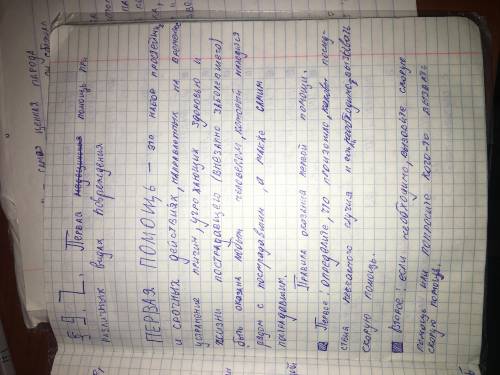 § 9. 2. Первая медицинская помощь при
различных видах повреждения
ПЕРВАЯ ПОМОЩЬ — это набор простейш.
и срочных действиях, направленных на временное
устранение причин, угрожающих здоровью и
жизни пострадавшего (внезапно заболевшего)
быть оказана любым человеком, который находился
рядом с пострадавшим, а также самим
пострадавшим.
Правила оказания первой помощи.
Первое: определите, что произошло, какова послед-
ствий несчастного случая и есть необходимо вызывать
скорую помощь.
Второе: если необходимо, вызовите скорую
помощь или попросите кого-то вызвать
скорую помощь.
самая ценная порода